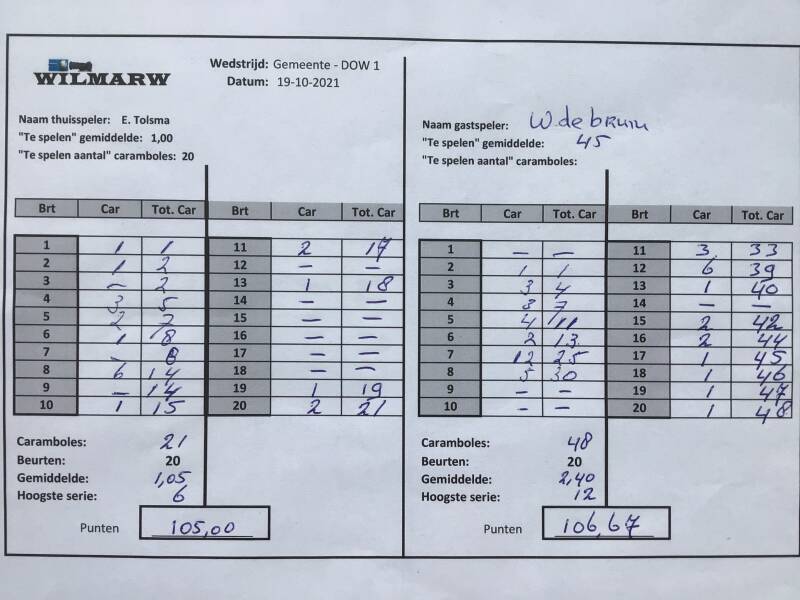 WILMARW
Wedstrijd: Gemeente - DOW 1
Datum: 19-10-2021
Naam thuisspeler: E. Tolsma
"Te spelen" gemiddelde: 1,00
"Te spelen aantal" caramboles: 20
Brt Car Tot. Car Brt Car Tot. Car
1 1 1 11 2 17
2 1 2 12 — —
3 — 2 13 1 18
4 3 5 14 — —
5 2 7 15 — —
6 1 8 16 — —
7 — 8 17 — —
8 6 14 18 — —
9 — 14 19 1 19
10 1 15 20 2 21
Caramboles: 21
Beurten: 20
Gemiddelde: 1,05
Hoogste serie: 6
Punten 105,00
Naam gastspeler: W. de bruin
"Te spelen" gemiddelde: 45
"Te spelen aantal" caramboles:
Brt Car Tot. Car Brt Car Tot. Car
1 — — 11 3 33
2 1 1 12 6 39
3 3 4 13 1 40
4 3 7 14 — —
5 4 11 15 2 42
6 2 13 16 2 44
7 12 25 17 1 45
8 5 30 18 1 46
9 — — 19 1 47
10 — — 20 1 48
Caramboles: 48
Beurten: 20
Gemiddelde: 2,40
Hoogste serie: 12
Punten 106,67